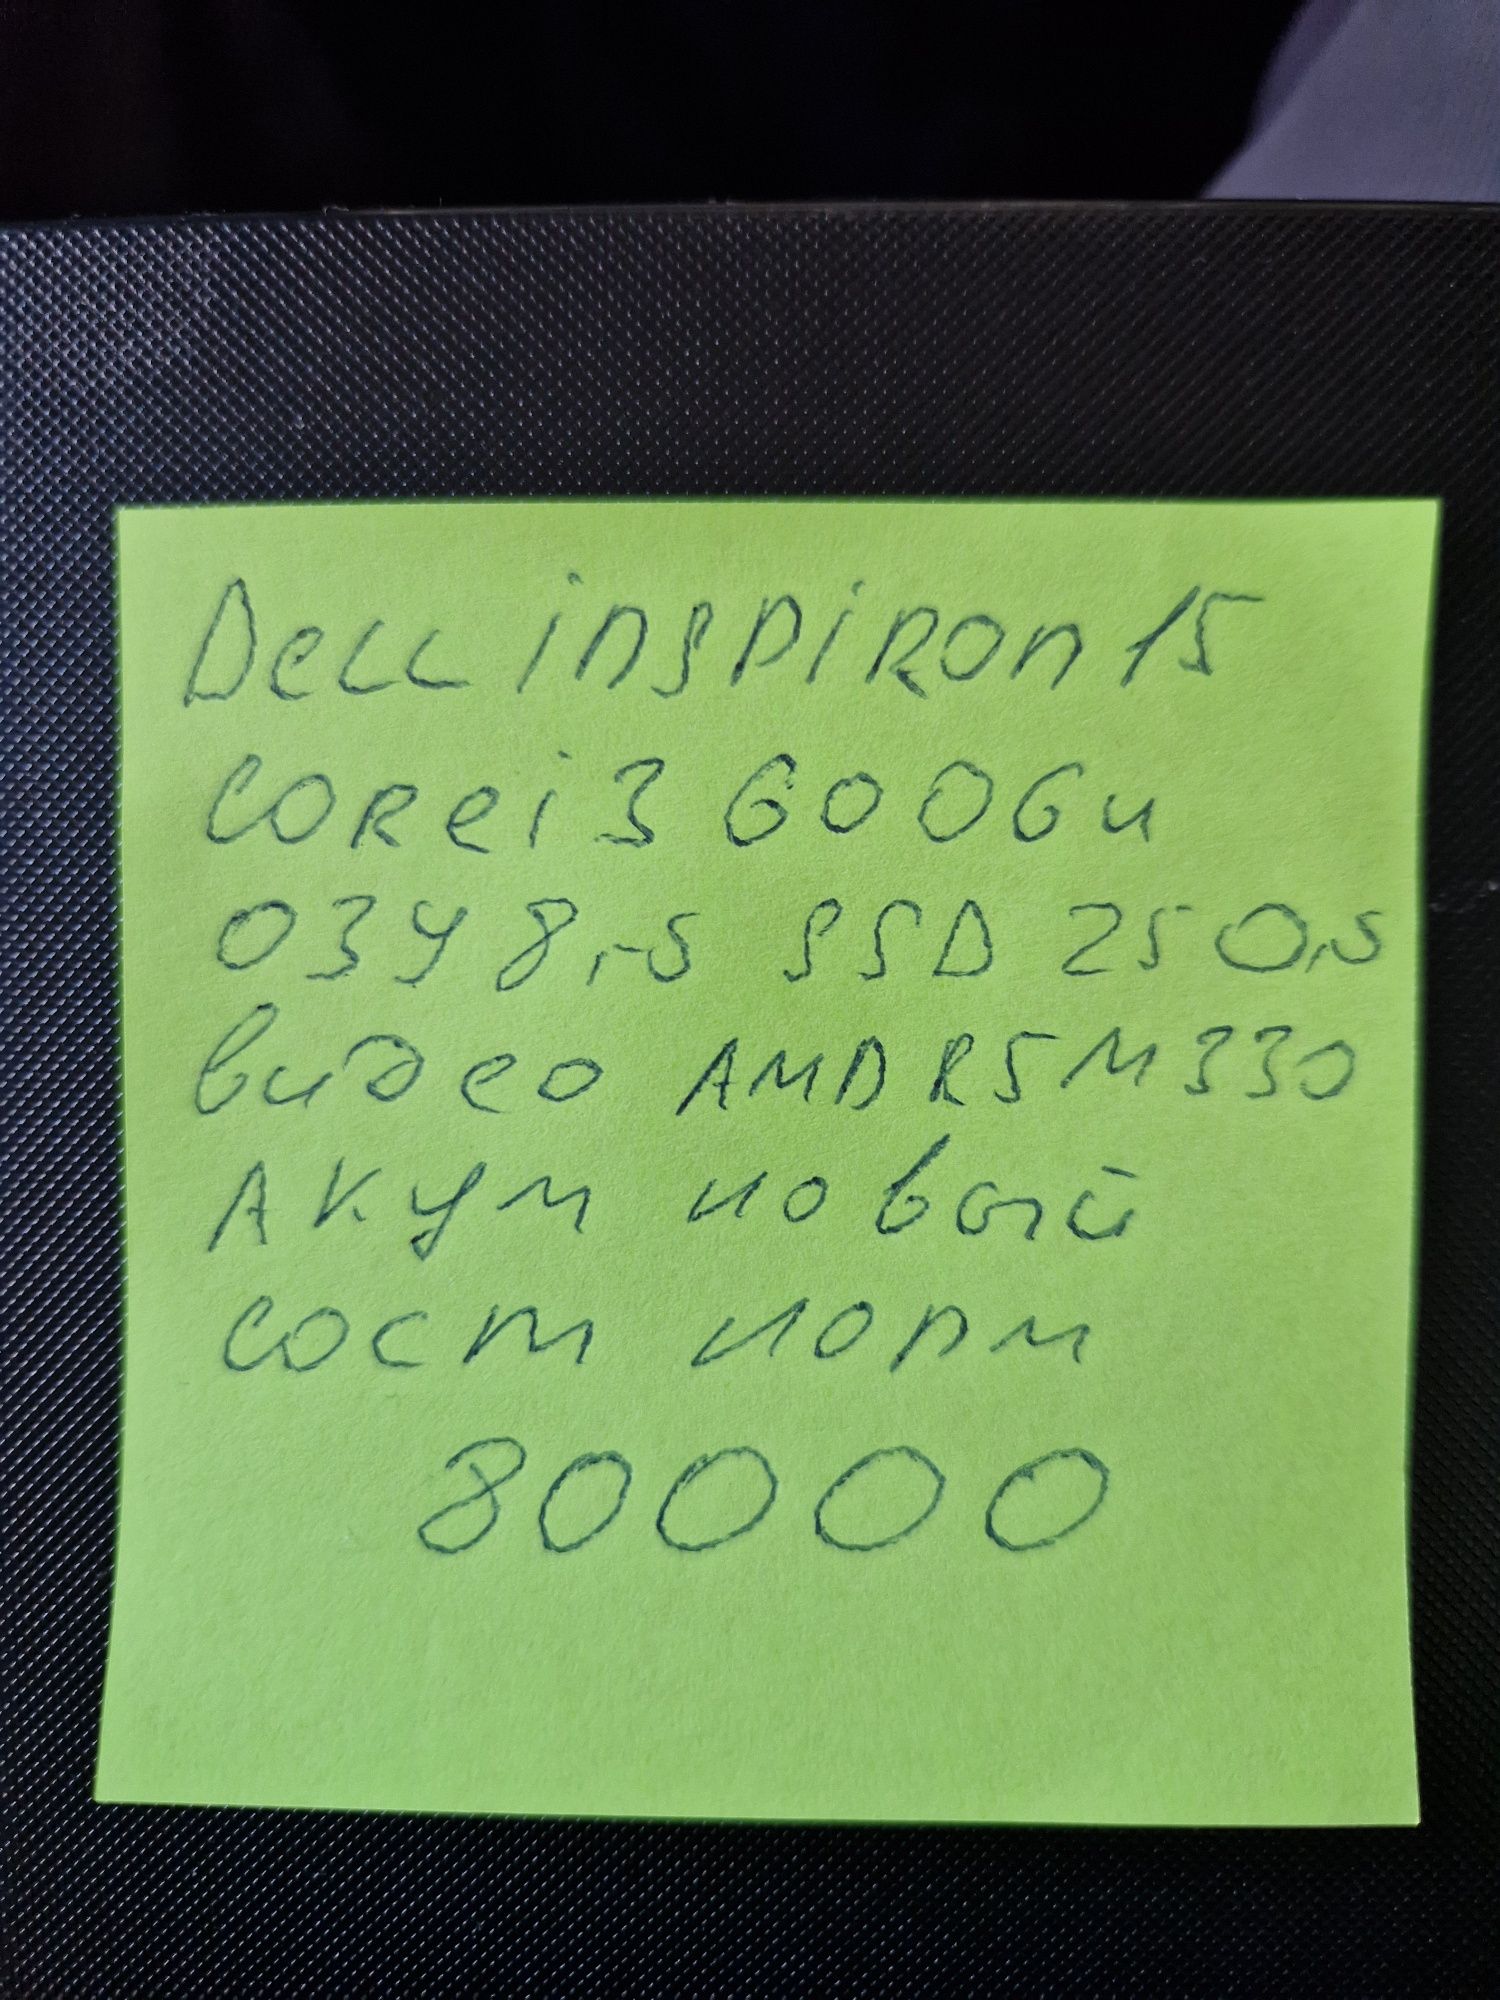 Dell inspiron 15
corei3 6006u
ОЗУ 8гб SSD 250гб
видео AMD R5 M330
Акум новый
сост норм
80000